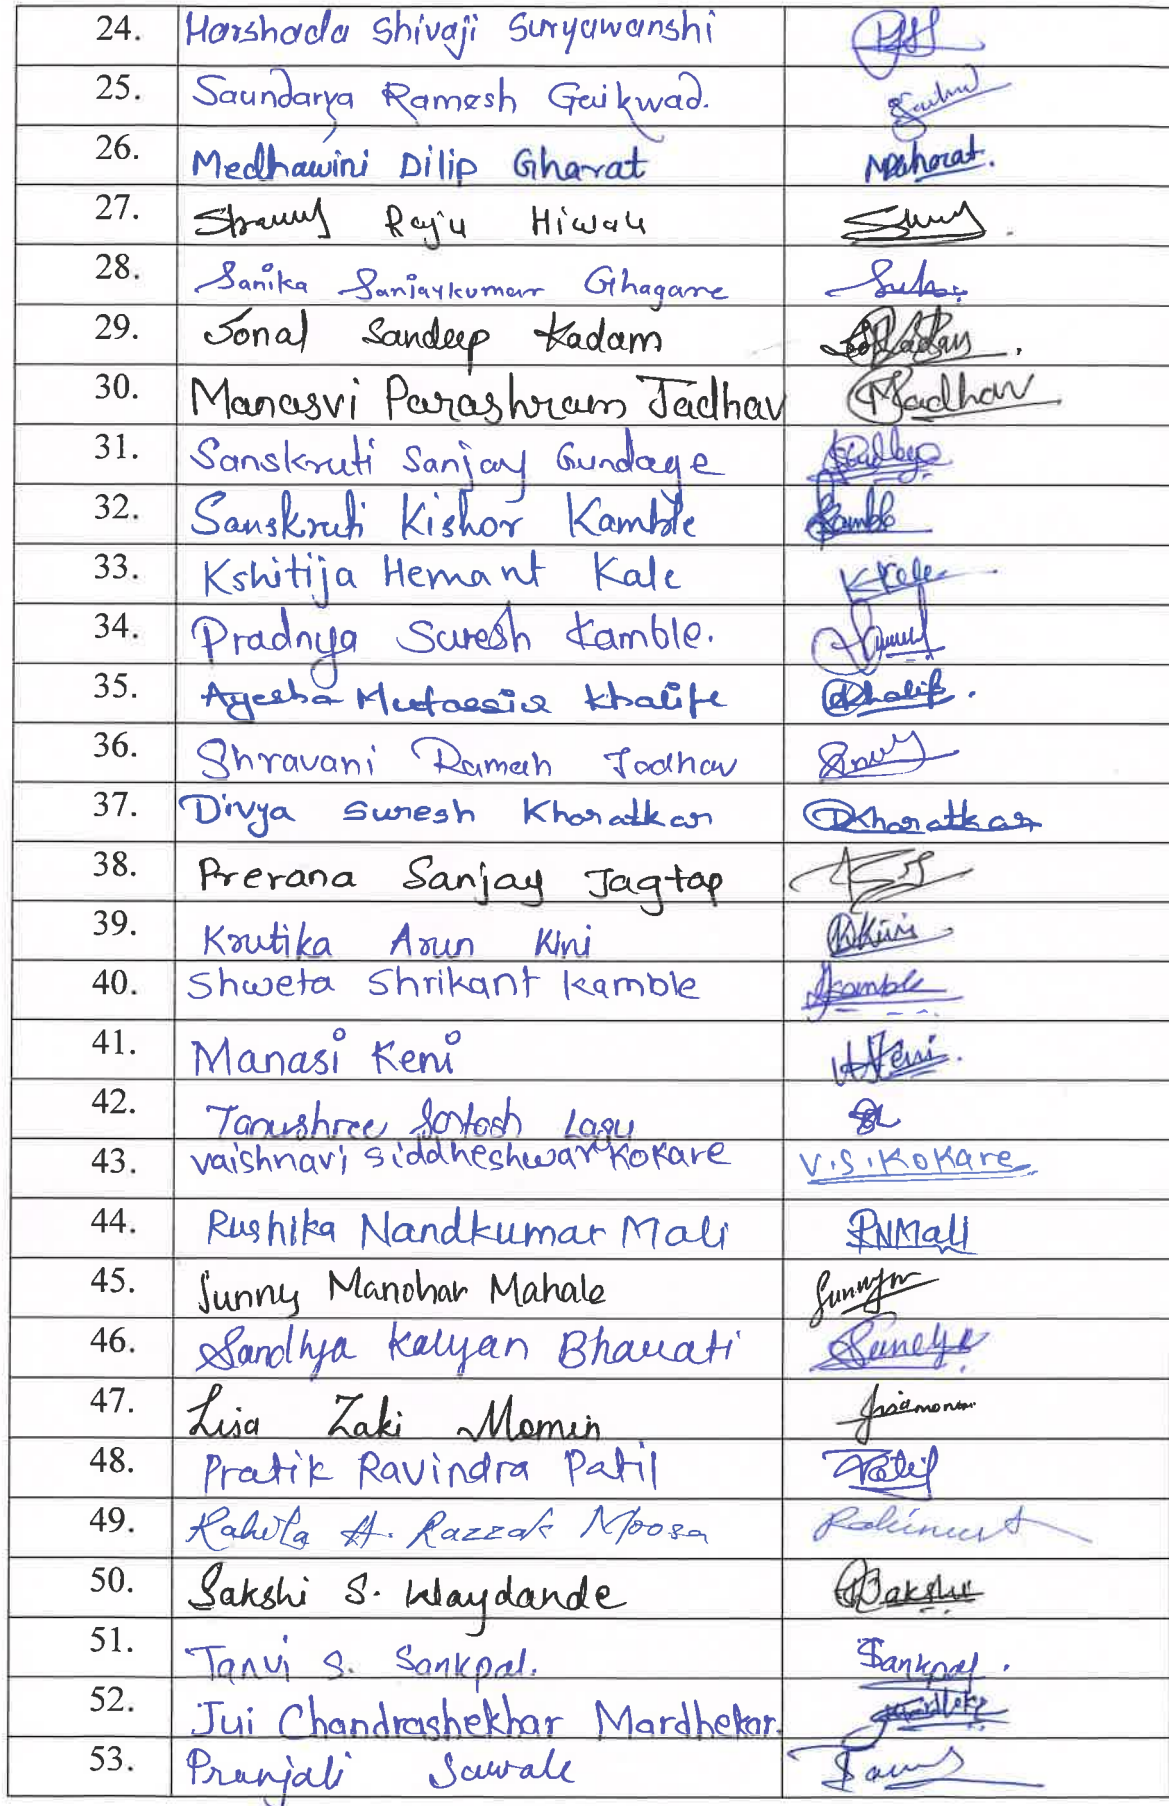 24. Harshada Shivaji Suryawanshi
25. Saundarya Ramesh Gaikwad.
26. Medhawini Dilip Gharat
27. Raju Hiwale
28. Sanika Sanjaykumar Ghagare
29. Sonal Sandeep Kadam
30. Manasvi Parashram Jadhav Jadhav
31. Sanskruti Sanjay Gundage
32. Sanskruti Kishor Kamble Kamble
33. Kshitija Hemant Kale KKale
34. Pradnya Suresh Kamble.
35. Ayesha Khalife Khalife.
36. Shravani Ramesh Jadhav
37. Divya Suresh Kharatkar DKharatkar
38. Prerana Sanjay Jagtap
39. Krutika Arun Kini KKini
40. Shweta Shrikant Kamble Skamble
41. Manasi Keni Keni.
42. Tanushree Santosh Lagu
43. Vaishnavi Siddheshwar Kokare V.S.Kokare
44. Rushika Nandkumar Mali RNMali
45. Sunny Manohar Mahale
46. Sandhya Kalyan Bharati
47. Lisa Zaki Momin Lisamomin
48. Pratik Ravindra Patil Patil
49. Rahila A. Razzak Moosa
50. Sakshi S. Waydande Sakshi
51. Tanvi S. Sankpal. Sankpal.
52. Jui Chandrashekhar Mardhekar.
53. Pranjali Sawale